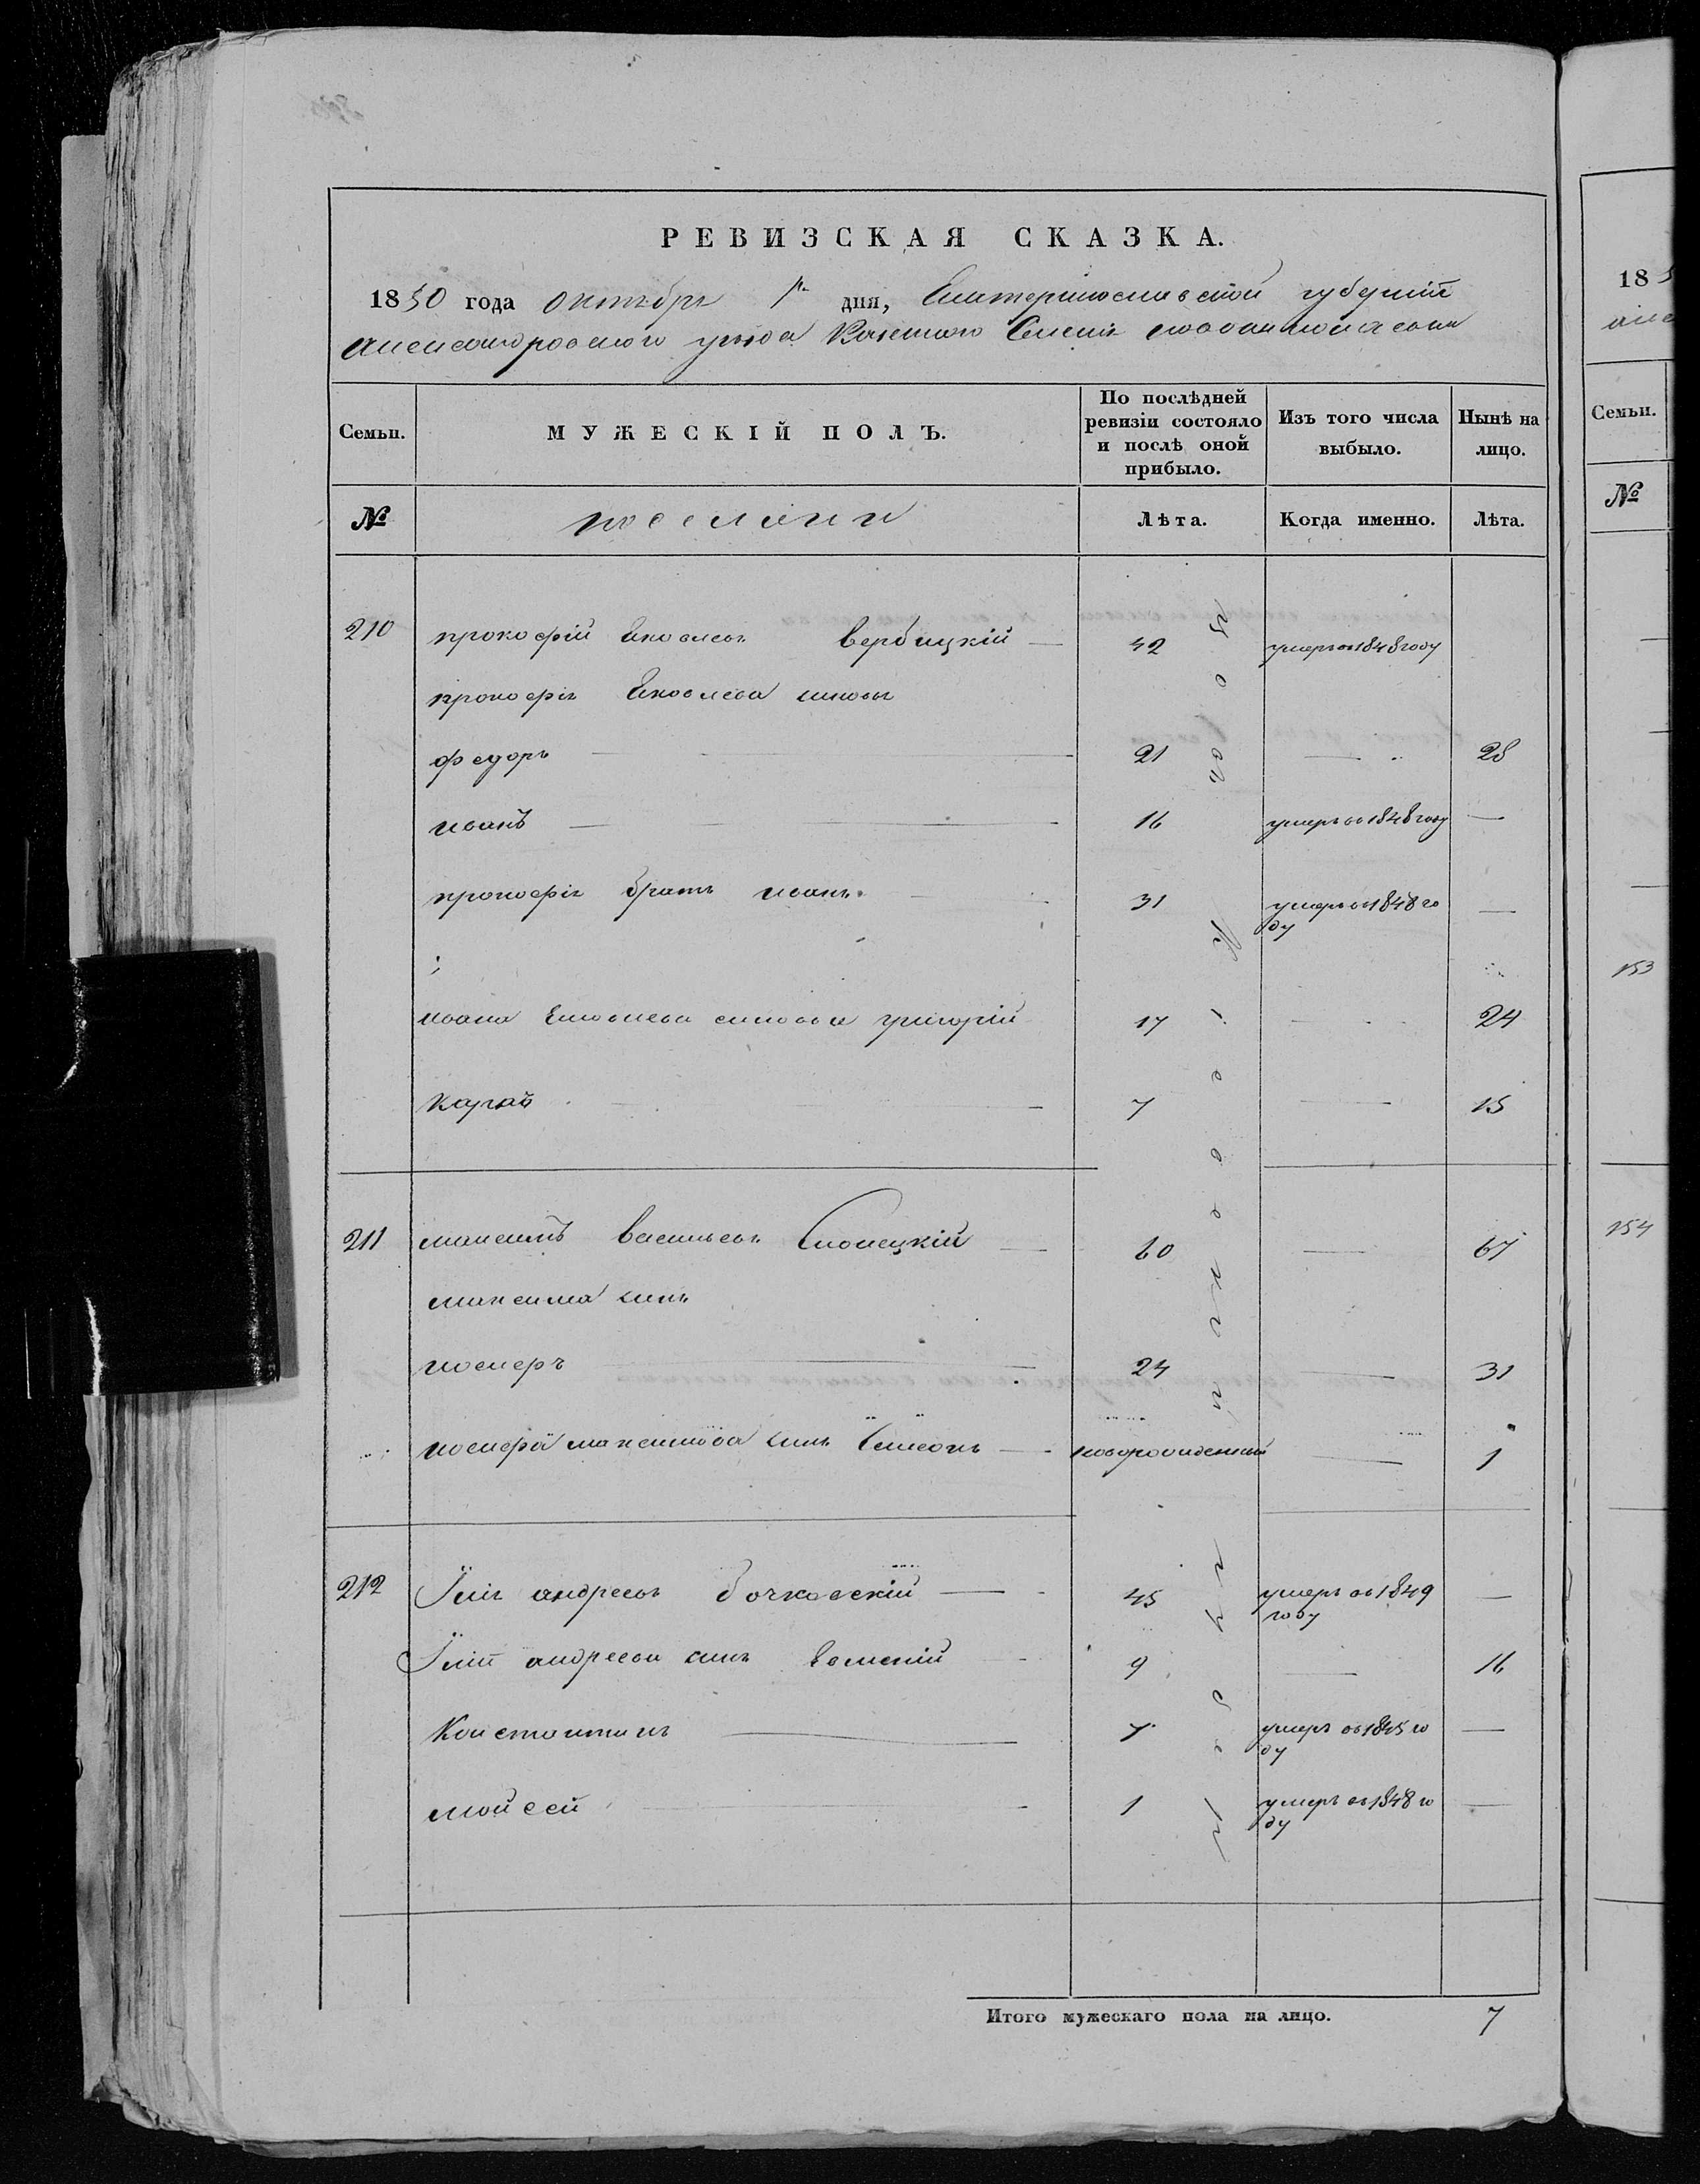 РЕВИЗСКАЯ СКАЗКА.
1850 года октября 1го дня, Екатеринославской губерніи
александровского уезда Казенного Селенія
Семьи. МУЖЕСКІЙ ПОЛЪ. По послѣдней ревизіи состояло и послѣ оной прибыло. Изъ того числа выбыло. Нынѣ на лицо.
№ поселяни Лѣта. Когда именно. Лѣта.
210 прокофій Яковлевъ вербицкій 42 умеръ въ 1848 году
прокофія Яковлева синовья
федоръ 21 28
иванъ 16 умеръ въ 1848 году
прокофія братъ иванъ 31 умеръ въ 1848 году
ивана Яковлева синовья григорій 17 24
карпъ 7 15
211 максимъ васильевъ 60 67
максима синъ
иосифъ 24 31
иосифа максимова синъ Семеонъ новорожденній 1
212 андреевъ бочковскій 45 умеръ въ 1849 году
андреева синъ 9 16
Константинъ 7 умеръ въ 1845 году
мойсей 1 умеръ въ 1848 году
Итого мужескаго пола на лицо. 7
18
Семьи.
№
153
154